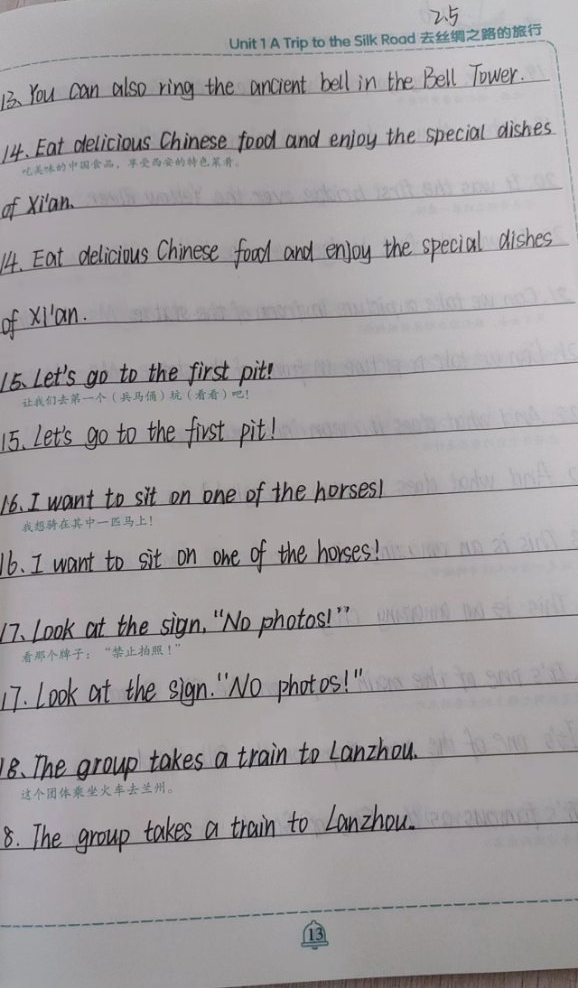 2.5
Unit 1 A Trip to the Silk Road 去丝绸之路的旅行
13. You can also ring the ancient bell in the Bell Tower.
14. Eat delicious Chinese food and enjoy the special dishes
吃美味的中国食品，享受西安的特色菜肴。
of Xi'an.
14. Eat delicious Chinese food and enjoy the special dishes
of Xi'an.
15. Let's go to the first pit!
让我们去第一个（兵马俑）坑（看看）吧！
15. Let's go to the first pit!
16. I want to sit on one of the horses!
我想骑在其中一匹马上！
16. I want to sit on one of the horses!
17. Look at the sign. "No photos!"
看那个牌子：“禁止拍照！”
17. Look at the sign. "No photos!"
18. The group takes a train to Lanzhou.
这个团体乘坐火车去兰州。
8. The group takes a train to Lanzhou.
13